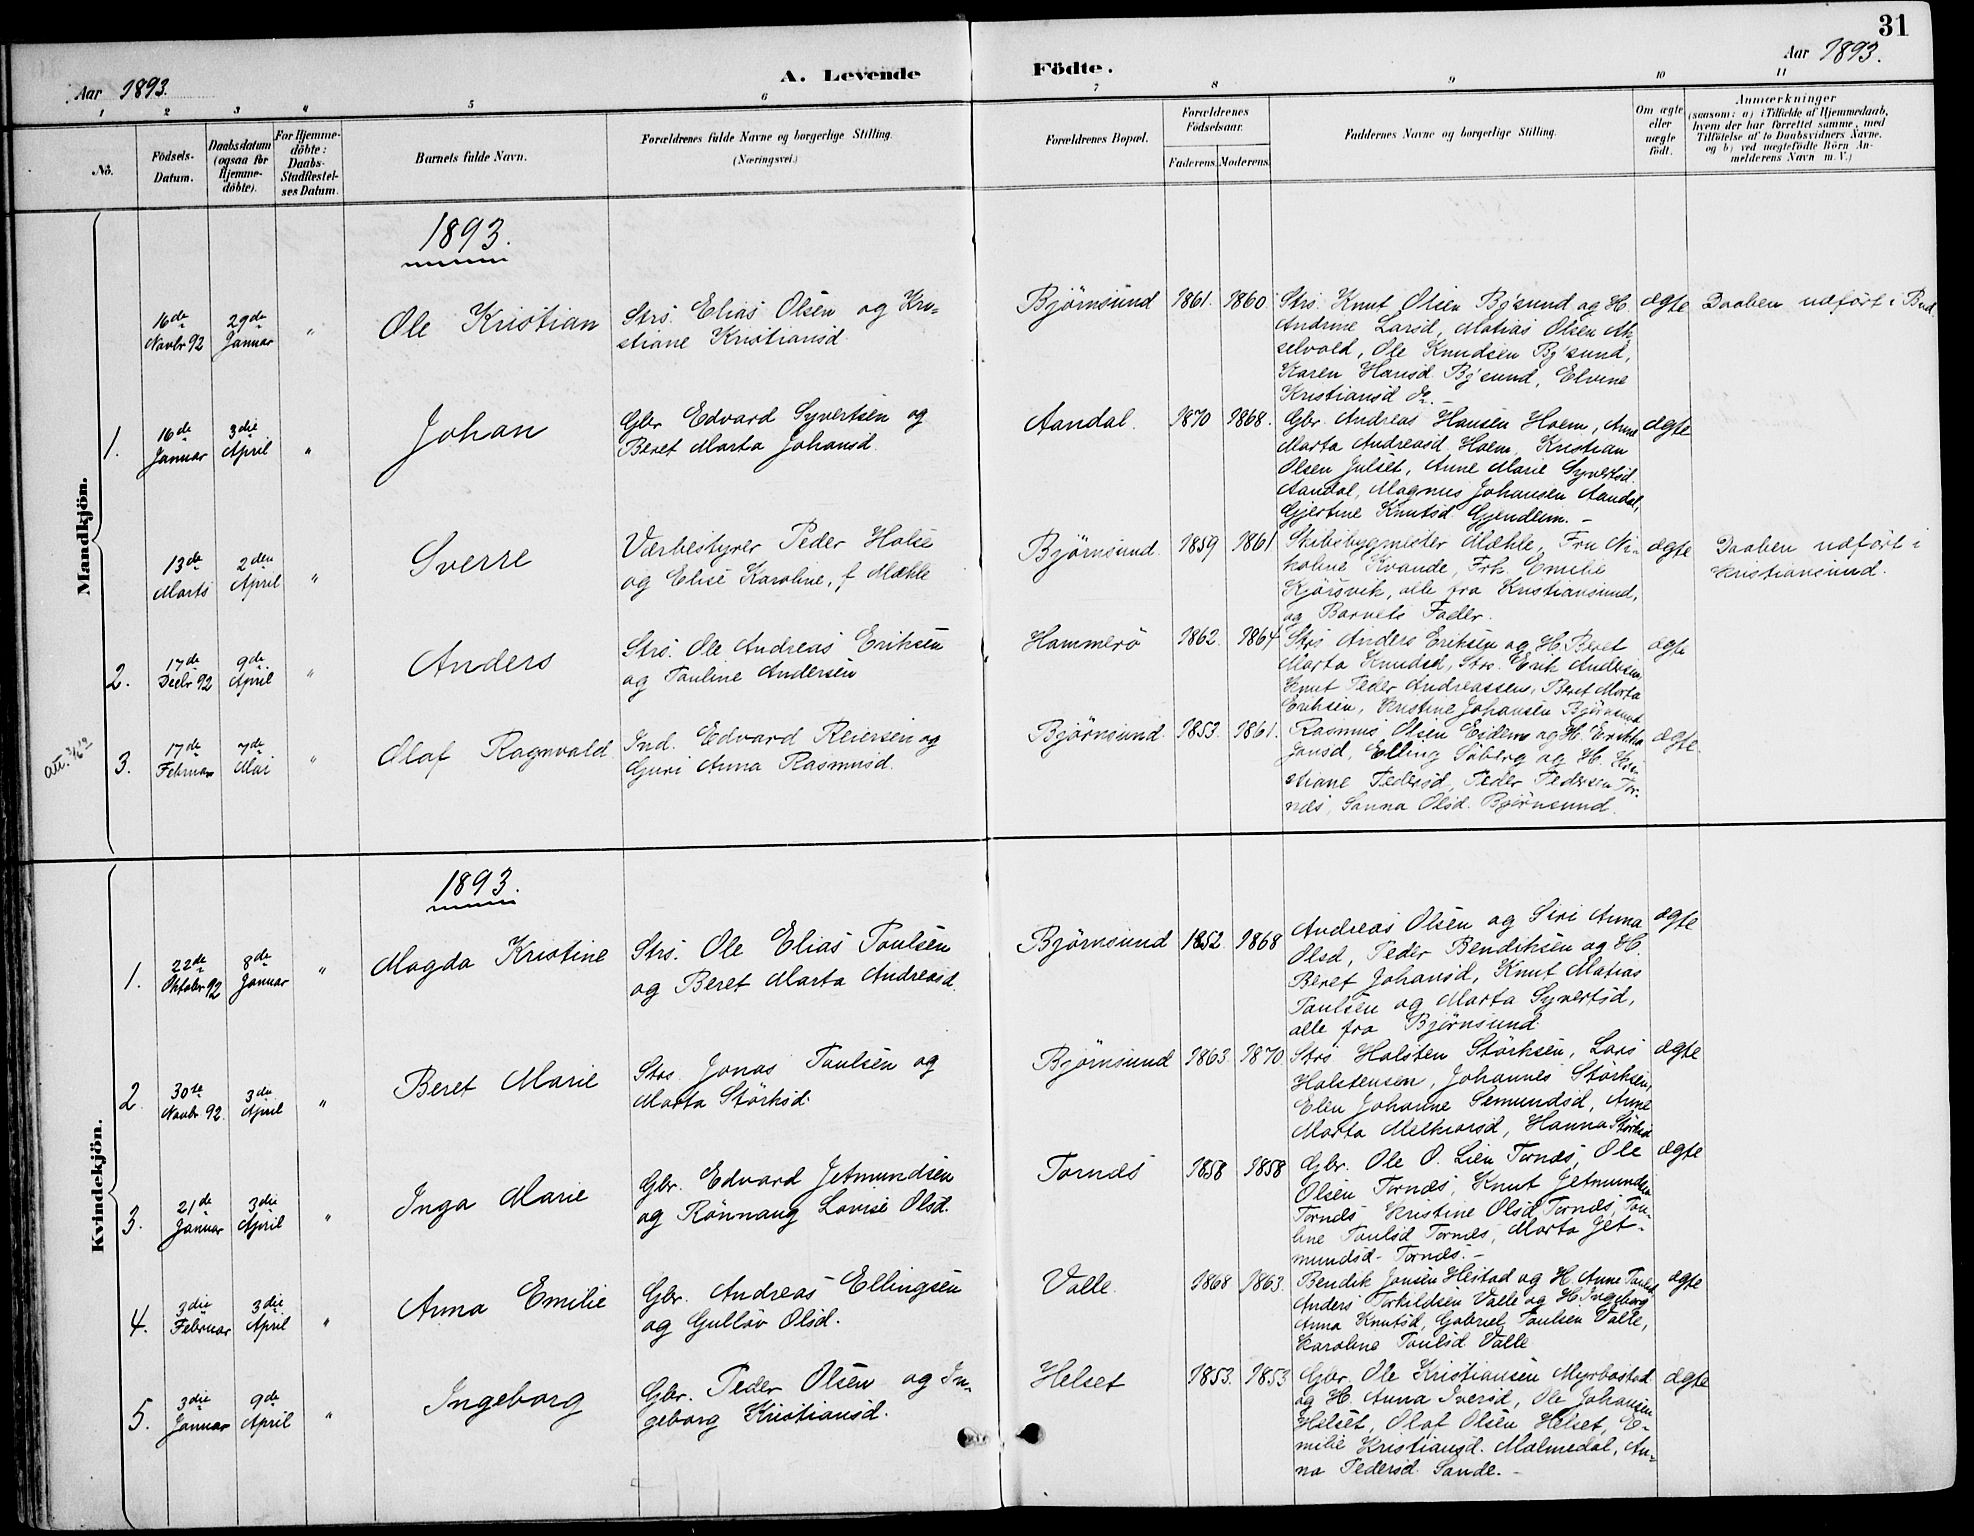 31
Aar 1893.
A. Levende Födte.
Aar 1893.
1 2 3 4 5 6 7 8 9 10 11
No.
Födsels-Datum.
Daabsdatum (ogsaa for Hjemme-döbte).
For Hjemme-döbte: Daabs-Stadfæstel-ses Datum.
Barnets fulde Navn.
Forældrenes fulde Navne og borgerlige Stilling.
(Næringsvei.)
Forældrenes Bopæl.
Forældrenes Födselsaar.
Faderens. Moderens.
Faddernes Navne og borgerlige Stilling.
Om ægte eller uægte födt.
Anmærkninger
(saasom: a) i Tilfælde af Hjemmedaab,
hvem der har forrettet samme, med
Tilföielse af to Daabsvidners Navne,
og b) ved uægtefödte Börn An-
melderens Navn m. V.)
Mandkjön.
1893.
16de Novbr 92
29de Januar
"
Ole Kristian
Strs. Elias Olsen og Kri-
stiane Kristiansd.
Björnsund
1861. 1860
Strs. Knut Olsen Bj'sund og H.
Andrine Larsd, Matias Olsen
selvold, Ole Knudsen Bj'sund,
Karen Hansd. Bj'sund, Elvine
Kristiansd
ægte
Daaben udført i Bud.
1.
16de Januar
3die April
"
Johan
Gbr Edvard Syvertsen og
Beret Marta Johansd.
Aandal.
1870 1868.
Gbr. Andreas Hansen Hoem, Anne
Marta Andreasd Hoem, Kristian
Olsen Julset, Anne Marie Syvertsd.
Aandal, Magnus Johansen Aandal,
Gjertine Knutsd. Gjendem. -
ægte
13de Marts
2den April
"
Sverre
Værbestyrer Peder Holse
og Elise Karoline, f. Mæhle
Björnsund.
1859 1861
Skibsbygmester Mæhle, Fru Ni-
koline Kvande, Frk. Emilie
Kjörsvik, alle fra Kristiansund,
og Barnets Fader.
ægte
Daaben udført i
Kristiansund.
2.
17de Decbr 92
9de April
"
Anders
Strs. Ole Andreas Eriksen
og Pauline Andersen
Hammerö
1862. 1864
Strs Anders Eriksen og H. Beret
Marta Knudsd, Strs. Erik Andersen,
Knut Peder Andreassen, Beret Marta
Eriksen, Kristine Johansen Björnsund
ægte
3.
17de Februar
7de Mai
"
Olaf Ragnvald
Ind. Edvard Reiersen og
Guri Anna Rasmusd.
Björnsund
1853. 1861.
Rasmus Olsen Eidem og H. Erikka
Jansd, Elling Söberg og H. Kri-
stiane Pedersd, Peder Pedersen Tor-
næs, Sanna Olsd. Björnsund.
ægte.
Kvindekjön.
1893.
1.
22de Oktober 92
8de Januar
"
Magda Kristine
Strs. Ole Elias Poulsen
og Beret Marta Andreasd.
Björnsund
1852. 1868
Andreas Olsen og Siri Anna
Olsd, Peder Bendiksen og H.
Beret Johansd, Knut Matias
Poulsen og Marta Syvertsd,
alle fra Björnsund
ægte
2
30te Novbr 92
3die April
"
Beret Marie
Strs. Jonas Poulsen og
Marta Störksd.
Björnsund
1863. 1870
Strs Holsten Störksen, Lars
Holstensen, Johannes Störksen,
Elen Johanne Semundsd, Anne
Marta Melkiorsd, Hanna Störksd
ægte
3.
21de Januar
3die April
"
Inga Marie
Gbr. Edvard Jetmundsen
og Rönnaug Lovise Olsd.
Tornæs
1858 1858
Gbr. Ole O. Lien Tornæs, Ole
Olsen Tornæs, Knut Jetmundsen
Tornæs Kristine Olsd Tornæs, Pau-
line Poulsd Tornæs, Marta Jet-
mundsd. Tornæs. -
ægte
4.
3die Februar
3die April
"
Anna Emilie
Gbr. Andreas Ellingsen
og Gullöv Olsd.
Valle.
1868 1863.
Bendik Jansen Hestad og H. Anne Poulsd
Anders Torkildsen Valle og H. Ingeborg
Anna Knutsd, Gabriel Poulsen Valle,
Karoline Poulsd Valle
ægte
5.
3die Januar
9de April
"
Ingeborg
Gbr. Peder Olsen og In-
geborg Kristiansd.
Helset
1853. 1853
Gbr. Ole Kristiansen Myrbostad
og H. Anna Iversd, Ole Johansen
Helset, Olaf Olsen Helset, E-
milie Kristiansd. Malmedal, An-
na Pedersd. Sande. -
ægte